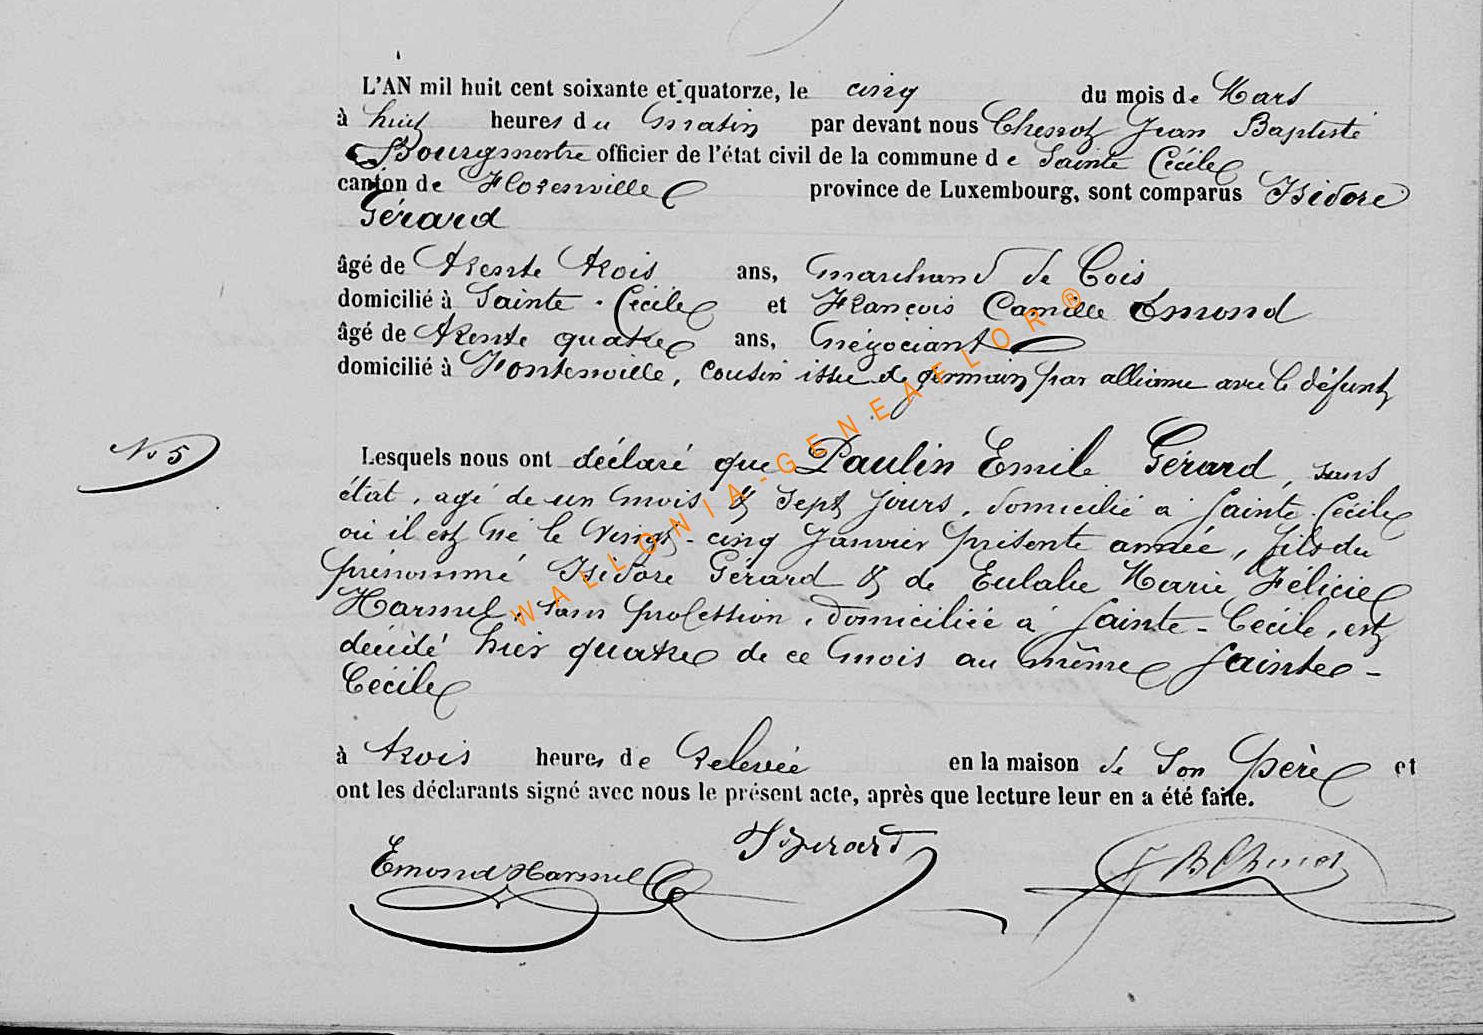 L'AN mil huit cent soixante et quatorze, le cinq du mois de Mars
à huit heures du matin par devant nous Chenot Jean Baptiste
Bourgmestre officier de l'état civil de la commune de Sainte Cécile
canton de Florenville province de Luxembourg, sont comparus Isidore
Gérard
âgé de trente trois ans, marchand de bois
domicilié à Sainte-Cécile et François Camille Emond
âgé de trente quatre ans, négociant
domicilié à Fontenoille, cousin issu de germain par alliance avec le défunt
N° 5
Lesquels nous ont déclaré que Paulin Emile Gérard, sans
état, agé de un mois & sept jours, domicilié à Sainte-Cécile
où il est né le vingt-cinq Janvier présente année, fils du
prénommé Isidore Gérard & de Eulalie Marie Félicie
Harmel, sans profession, domiciliée à Sainte-Cécile, est
décédé hier quatre de ce mois au même Sainte-
Cécile
à trois heures de relevée en la maison de son père et
ont les déclarants signé avec nous le présent acte, après que lecture leur en a été faite.
Emond Harmel IsGerard JB Chenot
WALLONIA-GENEAELOR®